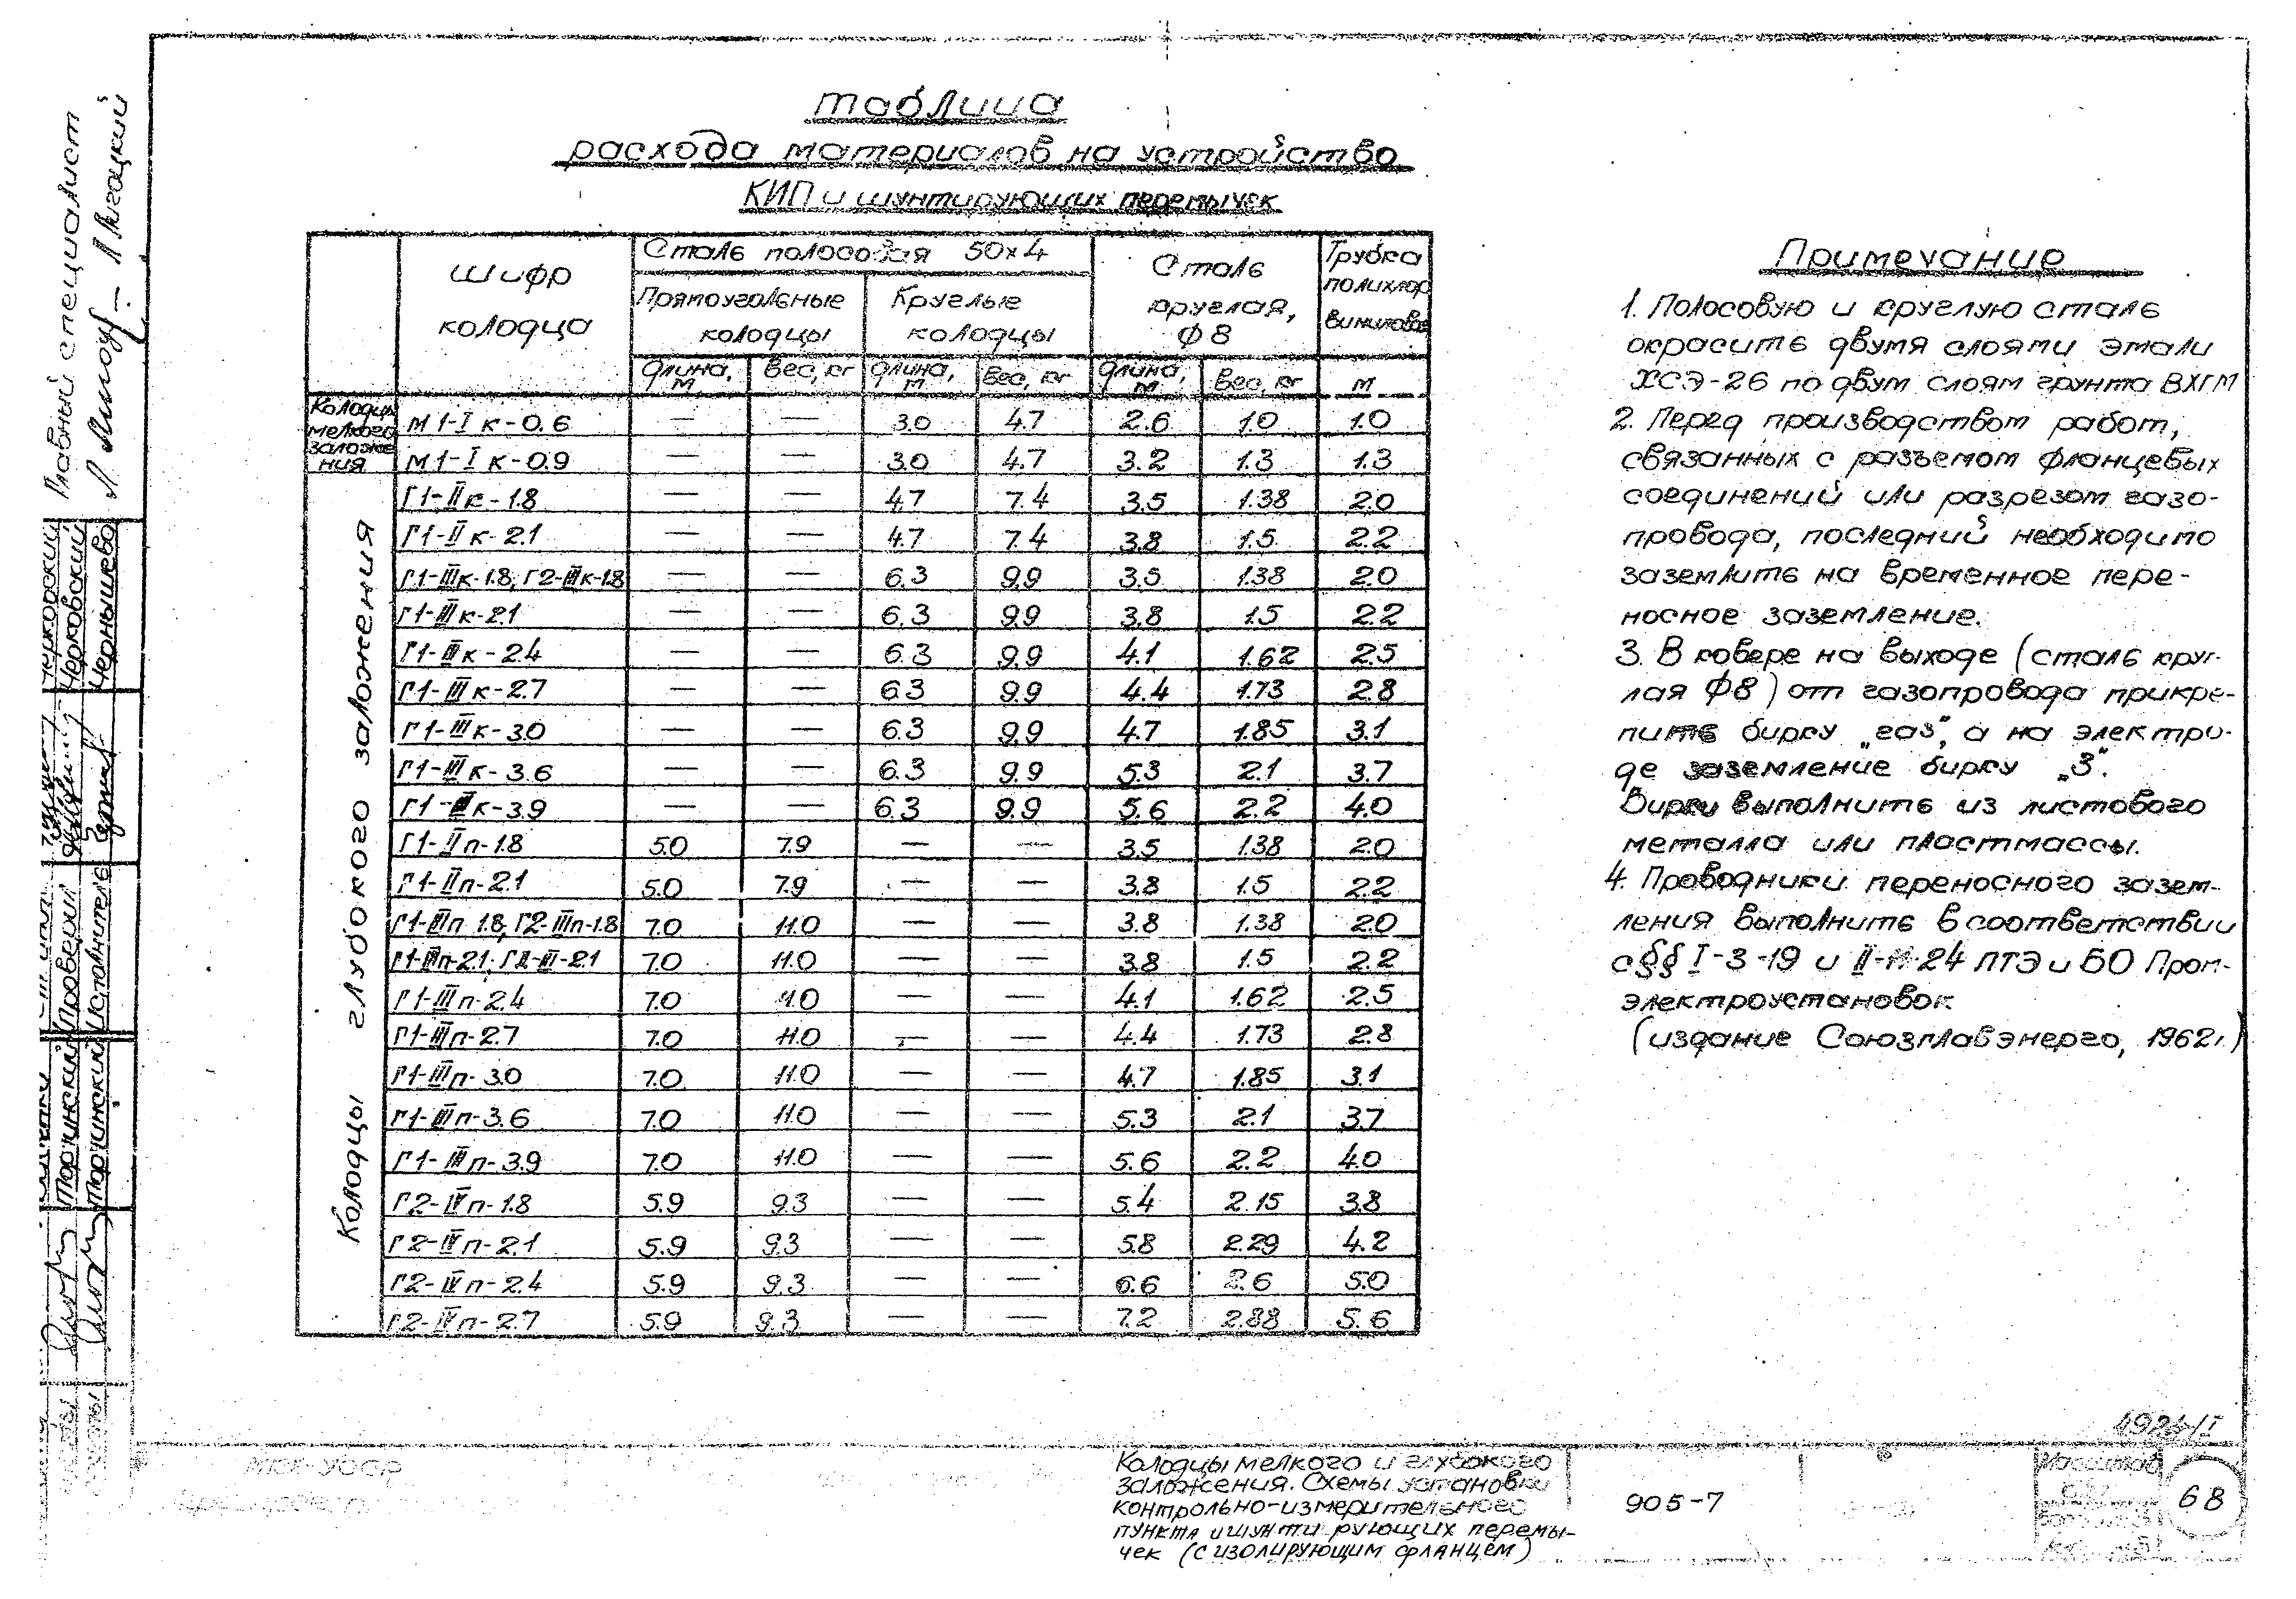 Таблица
расхода материалов на устройство
КИП и шунтирующих перемычек
Шифр колодца
Сталь полосовая 50×4
Прямоугольные колодцы
Круглые колодцы
Сталь круглая, Ф8
Трубка полихлор виниловая
Длина, м Вес, кг Длина, м Вес, кг Длина, м Вес, кг м
Колодцы мелкого заложения
М1-I к-0.6 — — 3.0 4.7 2.6 1.0 1.0
М1-I к-0.9 — — 3.0 4.7 3.2 1.3 1.3
Колодцы глубокого заложения
Г1-II к-1.8 — — 4.7 7.4 3.5 1.38 2.0
Г1-II к-2.1 — — 4.7 7.4 3.8 1.5 2.2
Г1-III к-1.8; Г2-III к-1.8 — — 6.3 9.9 3.5 1.38 2.0
Г1-III к-2.1 — — 6.3 9.9 3.8 1.5 2.2
Г1-III к-2.4 — — 6.3 9.9 4.1 1.62 2.5
Г1-III к-2.7 — — 6.3 9.9 4.4 1.73 2.8
Г1-III к-3.0 — — 6.3 9.9 4.7 1.85 3.1
Г1-III к-3.6 — — 6.3 9.9 5.3 2.1 3.7
Г1-III к-3.9 — — 6.3 9.9 5.6 2.2 4.0
Г1-II п-1.8 5.0 7.9 — — 3.5 1.38 2.0
Г1-II п-2.1 5.0 7.9 — — 3.8 1.5 2.2
Г1-III п-1.8; Г2-III п-1.8 7.0 11.0 — — 3.8 1.38 2.0
Г1-III п-2.1; Г2-III-2.1 7.0 11.0 — — 3.8 1.5 2.2
Г1-III п-2.4 7.0 11.0 — — 4.1 1.62 2.5
Г1-III п-2.7 7.0 11.0 — — 4.4 1.73 2.8
Г1-III п-3.0 7.0 11.0 — — 4.7 1.85 3.1
Г1-III п-3.6 7.0 11.0 — — 5.3 2.1 3.7
Г1-III п-3.9 7.0 11.0 — — 5.6 2.2 4.0
Г2-IV п-1.8 5.9 9.3 — — 5.4 2.15 3.8
Г2-IV п-2.1 5.9 9.3 — — 5.8 2.29 4.2
Г2-IV п-2.4 5.9 9.3 — — 6.6 2.6 5.0
Г2-IV п-2.7 5.9 9.3 — — 7.2 2.88 5.6
Примечание
1. Полосовую и круглую сталь
окрасить двумя слоями эмали
ХСЭ-26 по двум слоям грунта ВХГМ
2. Перед производством работ,
связанных с разъемом фланцевых
соединений или разрезом газо-
провода, последний необходимо
заземлить на временное пере-
носное заземление.
3. В ковере на выходе (сталь круг-
лая Ф8) от газопровода прикре-
пить бирку „газ“, а на электро-
де заземление бирку „З“.
Бирки выполнить из листового
металла или пластмассы.
4. Проводники переносного зазем-
ления выполнить в соответствии
с §§ I-3-19 и II-11-24 ПТЭ и БО Пром-
электроустановок
(издание Союзглавэнерго, 1962г.)
Главный специалист
Лигацкий
Черковский
Чернышева
Проверил
Исполнитель
Торчинский
Торчинский
Колодцы мелкого и глубокого
заложения. Схемы установки
контрольно-измерительного
пункта и шунтирующих перемы-
чек (с изолирующим фланцем)
905-7
Масштаб
68